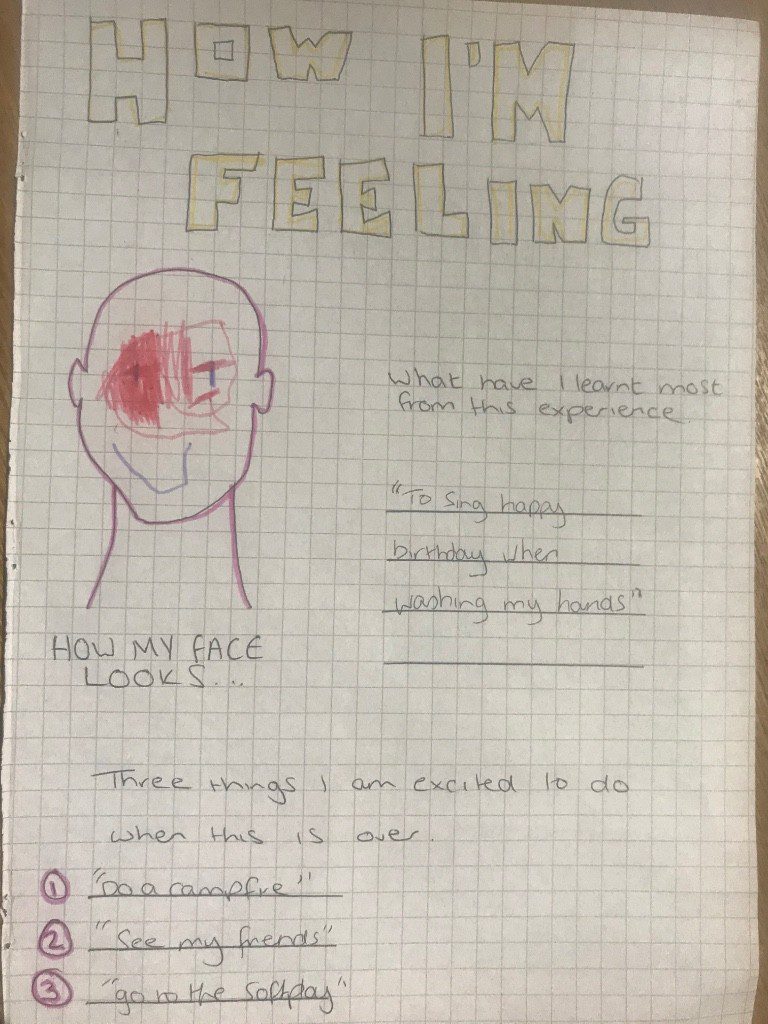 HOW I'M
FEELING
What have I learnt most
from this experience.
"To sing happy
birthday when
washing my hands"
HOW MY FACE
LOOKS...
Three things I am excited to do
when this is over.
1 "Do a campfire"
2 "See my friends"
3 "go to the softplay"